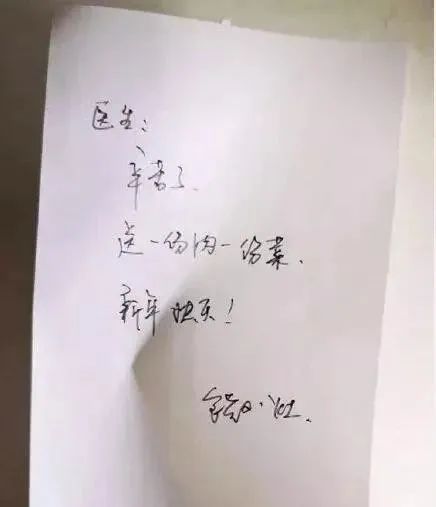 医生:
辛苦了.
送一份肉一份菜.
新年快乐!
小灶.